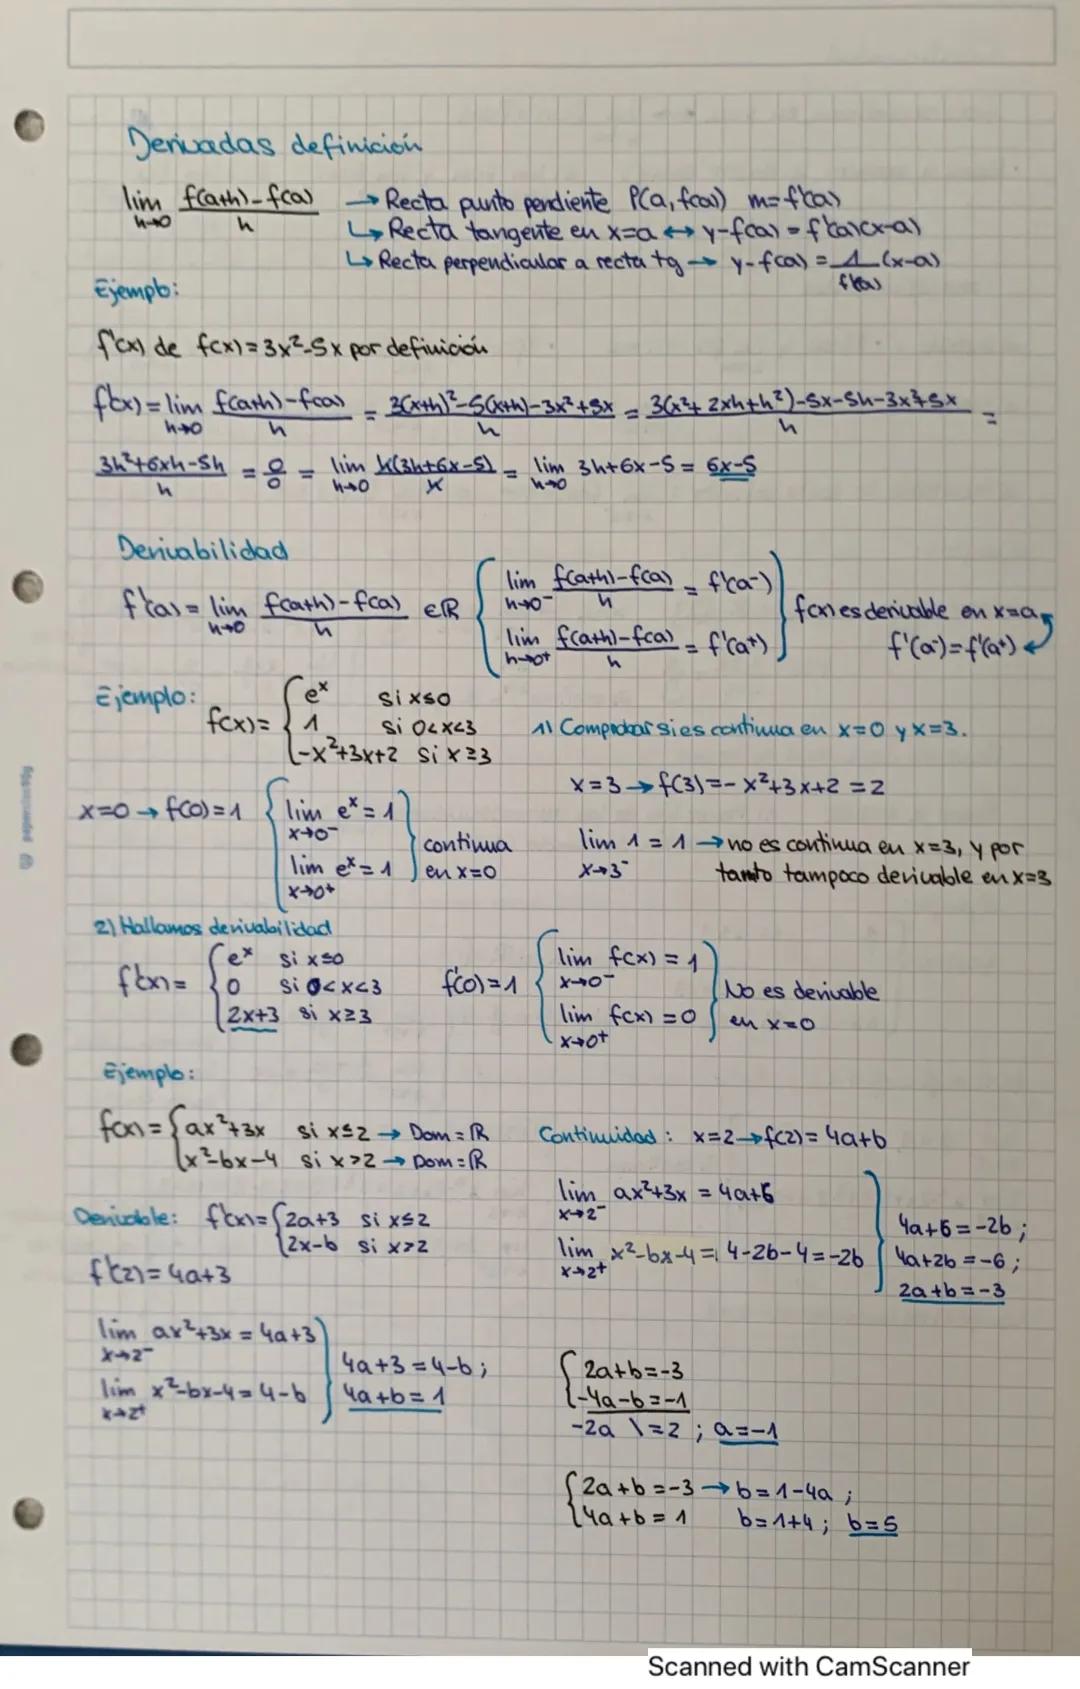 Derivadas definición
lim f(a+h)-f(a) / h → Recta punto pendiente P(a, f(a)) m=f'(a)
h→0
↳ Recta tangente en x=a ↔ y-f(a) = f'(a)(x-a)
↳ Recta perpendicular a recta tg → y-f(a) = 1/f'(a) (x-a)
Ejemplo:
f'(x) de f(x)=3x²-5x por definición
f'(x) = lim h→0 f(a+h)-f(a) / h = 3(x+h)²-5(x+h)-3x²+5x / h = 3(x²+2xh+h²)-5x-5h-3x²+5x / h =
3h²+6xh-5h / h = 0/0 = lim h→0 h(3h+6x-5) / h = lim h→0 3h+6x-5 = 6x-5
Derivabilidad
f'(a) = lim h→0 f(a+h)-f(a) / h ∈ℝ { lim h→0⁻ f(a+h)-f(a) / h = f'(a⁻)
lim h→0⁺ f(a+h)-f(a) / h = f'(a⁺) } f(x) es derivable en x=a
f'(a⁻)=f'(a⁺)
Ejemplo:
f(x)= { e^x si x≤0
1 si 0<x<3
-x²+3x+2 si x≥3
1) Comprobar si es continua en x=0 y x=3.
x=0 → f(0)=1 { lim x→0⁻ e^x = 1
lim x→0⁺ e^x = 1 } continua en x=0
x=3 → f(3)=-x²+3x+2 = 2
lim x→3⁻ 1 = 1 → no es continua en x=3, y por
tanto tampoco derivable en x=3
2) Hallamos derivabilidad
f'(x)= { e^x si x≤0
0 si 0<x<3
2x+3 si x≥3
f'(0)=1 { lim x→0⁻ f(x) = 1
lim x→0⁺ f(x) = 0 } No es derivable
en x=0
Ejemplo:
f(x)= { ax²+3x si x≤2 → Dom=ℝ
x²-bx-4 si x>2 → Dom=ℝ
Continuidad: x=2 → f(2)= 4a+b
lim x→2⁻ ax²+3x = 4a+6
lim x→2⁺ x²-bx-4 = 4-2b-4=-2b
4a+6=-2b;
4a+2b=-6;
2a+b=-3
Derivable: f'(x)= { 2a+3 si x≤2
2x-b si x>2
f'(2)= 4a+3
lim x→2⁻ ax²+3x = 4a+3
lim x→2⁺ x²-bx-4 = 4-b
4a+3 = 4-b;
4a+b = 1
{ 2a+b=-3
-4a-b=-1
-2a \=2; a=-1
{ 2a+b=-3 → b=1-4a;
4a+b=1 b=1+4; b=5
Scanned with CamScanner